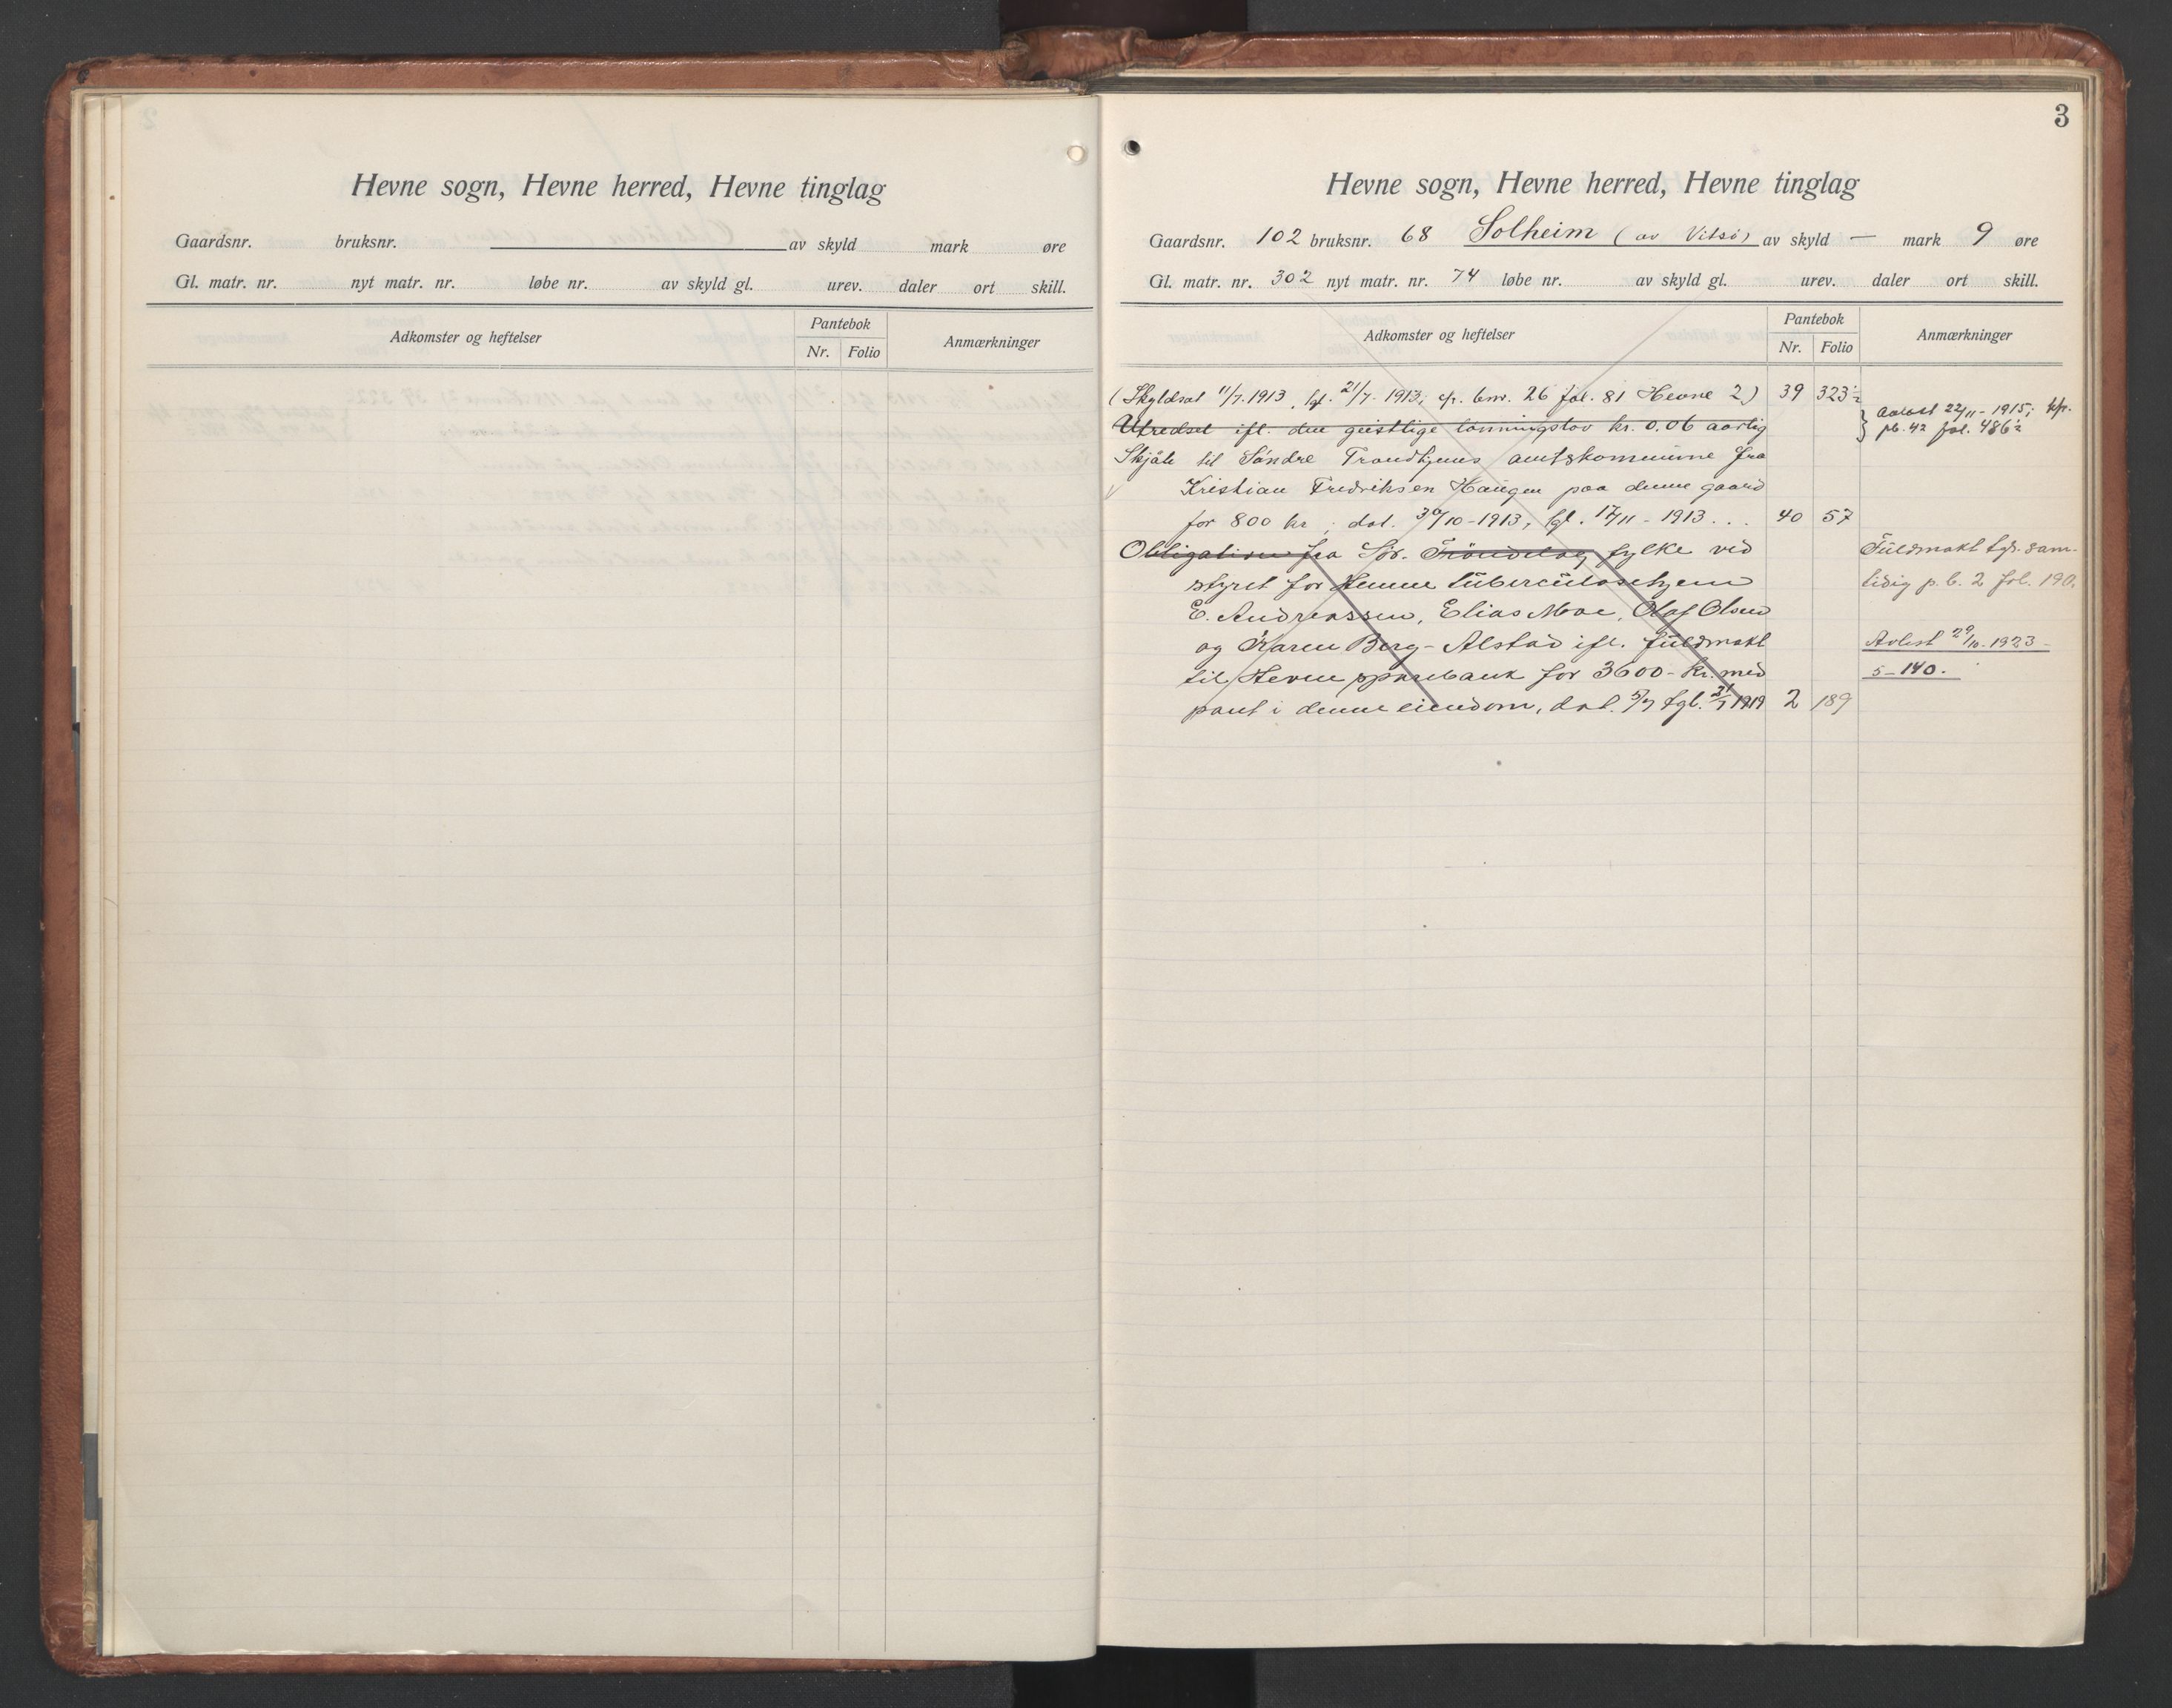 Hevne sogn, Hevne herred, Hevne tinglag
Gaardsnr. bruksnr. av skyld mark øre
Gl. matr. nr. nyt matr. nr. løbe nr. av skyld gl. urev. daler ort skill.
Adkomster og heftelser Pantebok Anmærkninger
Nr. Folio
3
Hevne sogn, Hevne herred, Hevne tinglag
Gaardsnr. 102 bruksnr. 68 Solheim (av Vitsö) av skyld — mark 9 øre
Gl. matr. nr. 302 nyt matr. nr. 74 løbe nr. av skyld gl. urev. daler ort skill.
Adkomster og heftelser Pantebok Anmærkninger
Nr. Folio
(Skyldsat 11/7. 1913, tgl. 21/7 - 1913; cfr. bnr. 26 fol. 81 Hevne 2) 39 323½
Utredsel ifl. den geistlige lønningslov kr. 0.06 aarlig } Avløst 22/11 - 1915; kfr. pb. 42 fol. 486½
Skjöte til Söndre Trondhjems amtskommune fra
Kristian Fredriksen Haugen paa denne gaard
for 800 kr; dat. 30/10-1913, tgl. 17/11 - 1913 . . . 40 57
Obligation fra Sör. Tröndelag fylke ved Fuldmakt tgl. sam-
styret for Hemne tuberculosehjem tidig p.b. 2 fol. 190.
E. Andreassen, Elias Moe, Olaf Olsen
og Karen Berg-Alstad ifl. fuldmakt Avlest 29/10-1923 -
til Hevne sparebank for 3600 - kr. med 5 - 140.
pant i denne eiendom, dat. 5/7 tgl. 21/7 1919 2 189